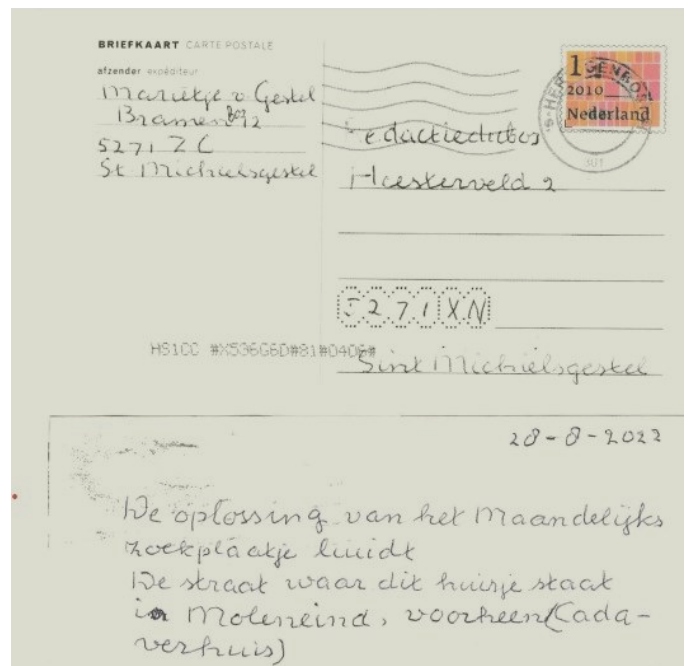 BRIEFKAART CARTE POSTALE
afzender expéditeur
Marietje v Gestel
Bramenbos 12
5271 ZC
St Michielsgestel
1
2010
Nederland
Redactiedubos
Heesterveld 2
5271 XN
HS1CC #X536G6D#81#0406#
Sint Michielsgestel
28-8-2022
De oplossing van het Maandelijks
zoekplaatje luidt
De straat waar dit huisje staat
is Moleneind, voorheen (Cada-
verhuis)